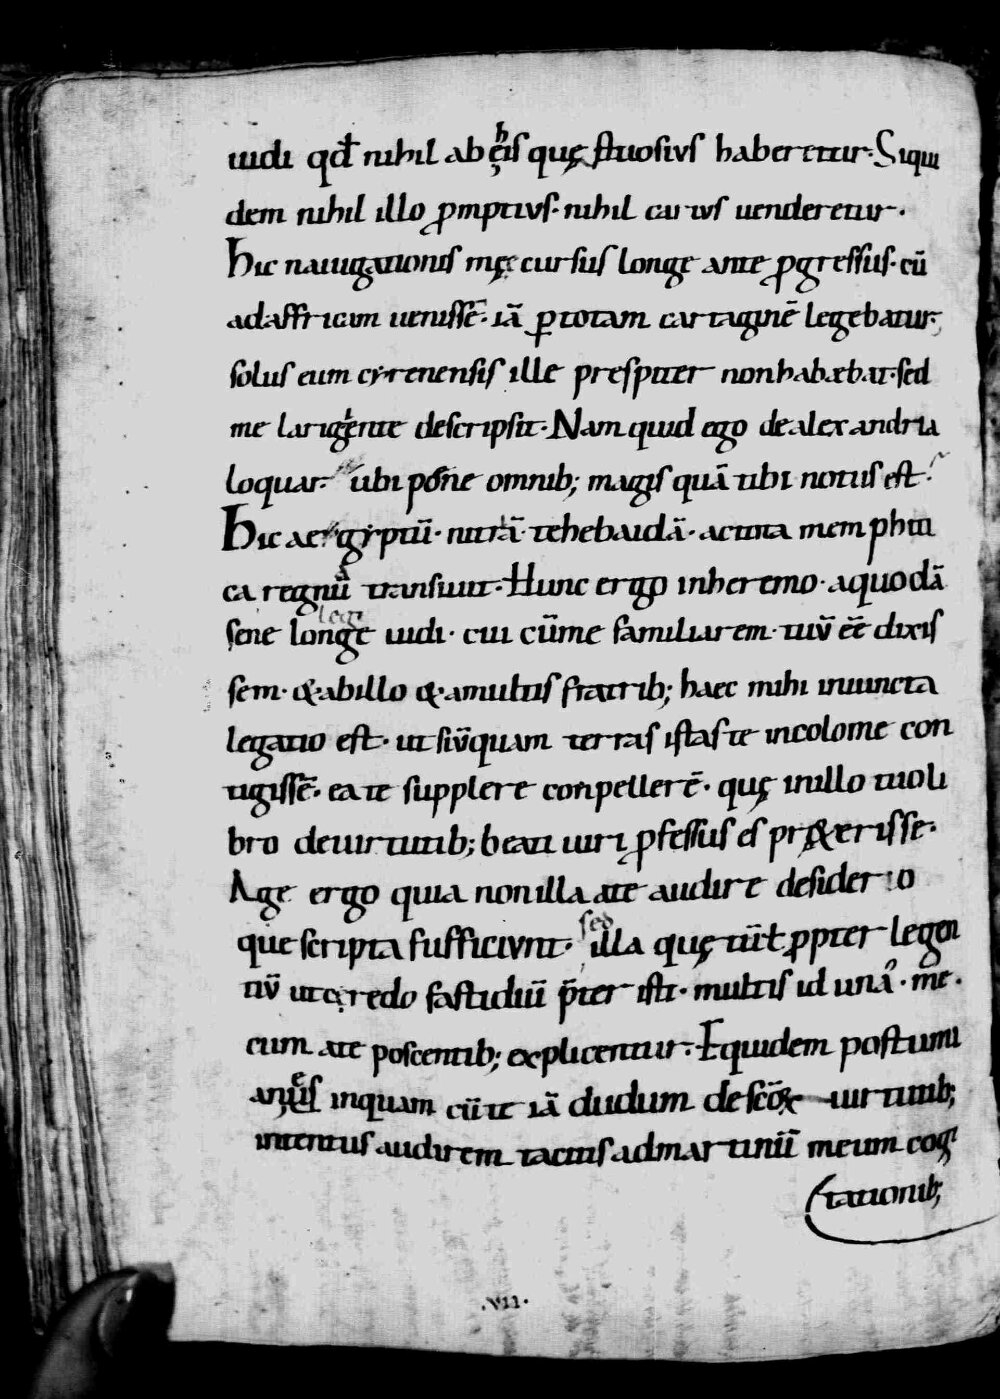 uidi qđ nihil ab ęis quęstuosius haberetur· Siqui
dem nihil illo ꝓmptius· nihil carius uenderetur·
hic nauigationis męę cursus longe ante ꝓgressus· cū
adaffricam uenissē· iā ꝑtotam cartaginē legebatur·
solus eum cyrenensis ille prespiter nonhabæbat· sed
me largiente descripsit· Nam quid ego dealexandria
loquar· ubi pęne omnib; magis quā tibi notus est·
hic aegyptū· nitriā· tehebaidā· actota memphiti
ca regna transiuit· Hunc ergo inheremo· aquodā
sene legi uidi· cui cūme familiarem tuū eē dixis
sem· &abillo &amultis fratrib; haec mihi iniuncta
legatio est· ut siūquam terras istas te incolome con
tigissē· ea te supplere conpellerē· quę inillo tuo li
bro deuirtutib; beati uiri ꝓfessus es pr&erisse·
Age ergo quia non illa a te audire desiderio
que scripta sufficiunt· sed illa quę tūt ꝓpter legen
tiū utcredo fastidiū p̄ter isti· multis id unā· me
cum a te poscentib; explicentur· Equidem postumi
anęis inquam cū te iā dudum descōꝝ uirtutib;
intentus audirem tacitus admartinū meum cogi
tationib;
·VII·